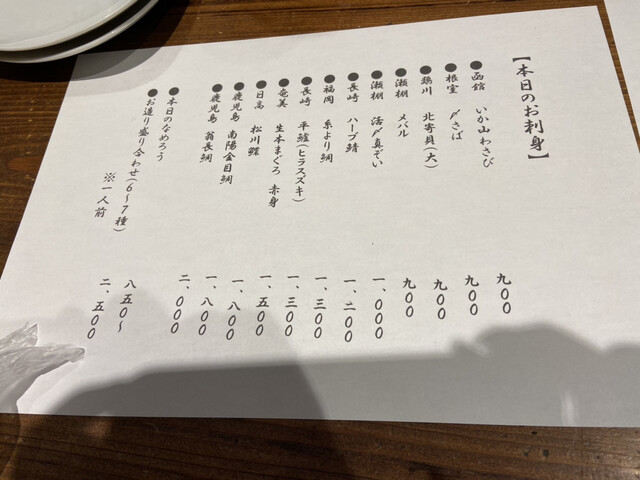 【本日のお刺身】
●函館 いか山わさび 九〇〇
●根室 〆さば 九〇〇
●鵡川 北寄貝(大) 九〇〇
●瀬棚 メバル 九〇〇
●瀬棚 活〆真ぞい 一、〇〇〇
●長崎 ハーブ鯖 一、二〇〇
●福岡 糸より鯛 一、三〇〇
●長崎 平鱸(ヒラスズキ) 一、三〇〇
●奄美 生本まぐろ 赤身 一、五〇〇
●日高 松川鰈 一、八〇〇
●鹿児島 南陽金目鯛 一、八〇〇
●鹿児島 翁長鯛 二、〇〇〇
●本日のなめろう 八五〇〜
●お造り盛り合わせ(6〜7種) 二、五〇〇
※一人前